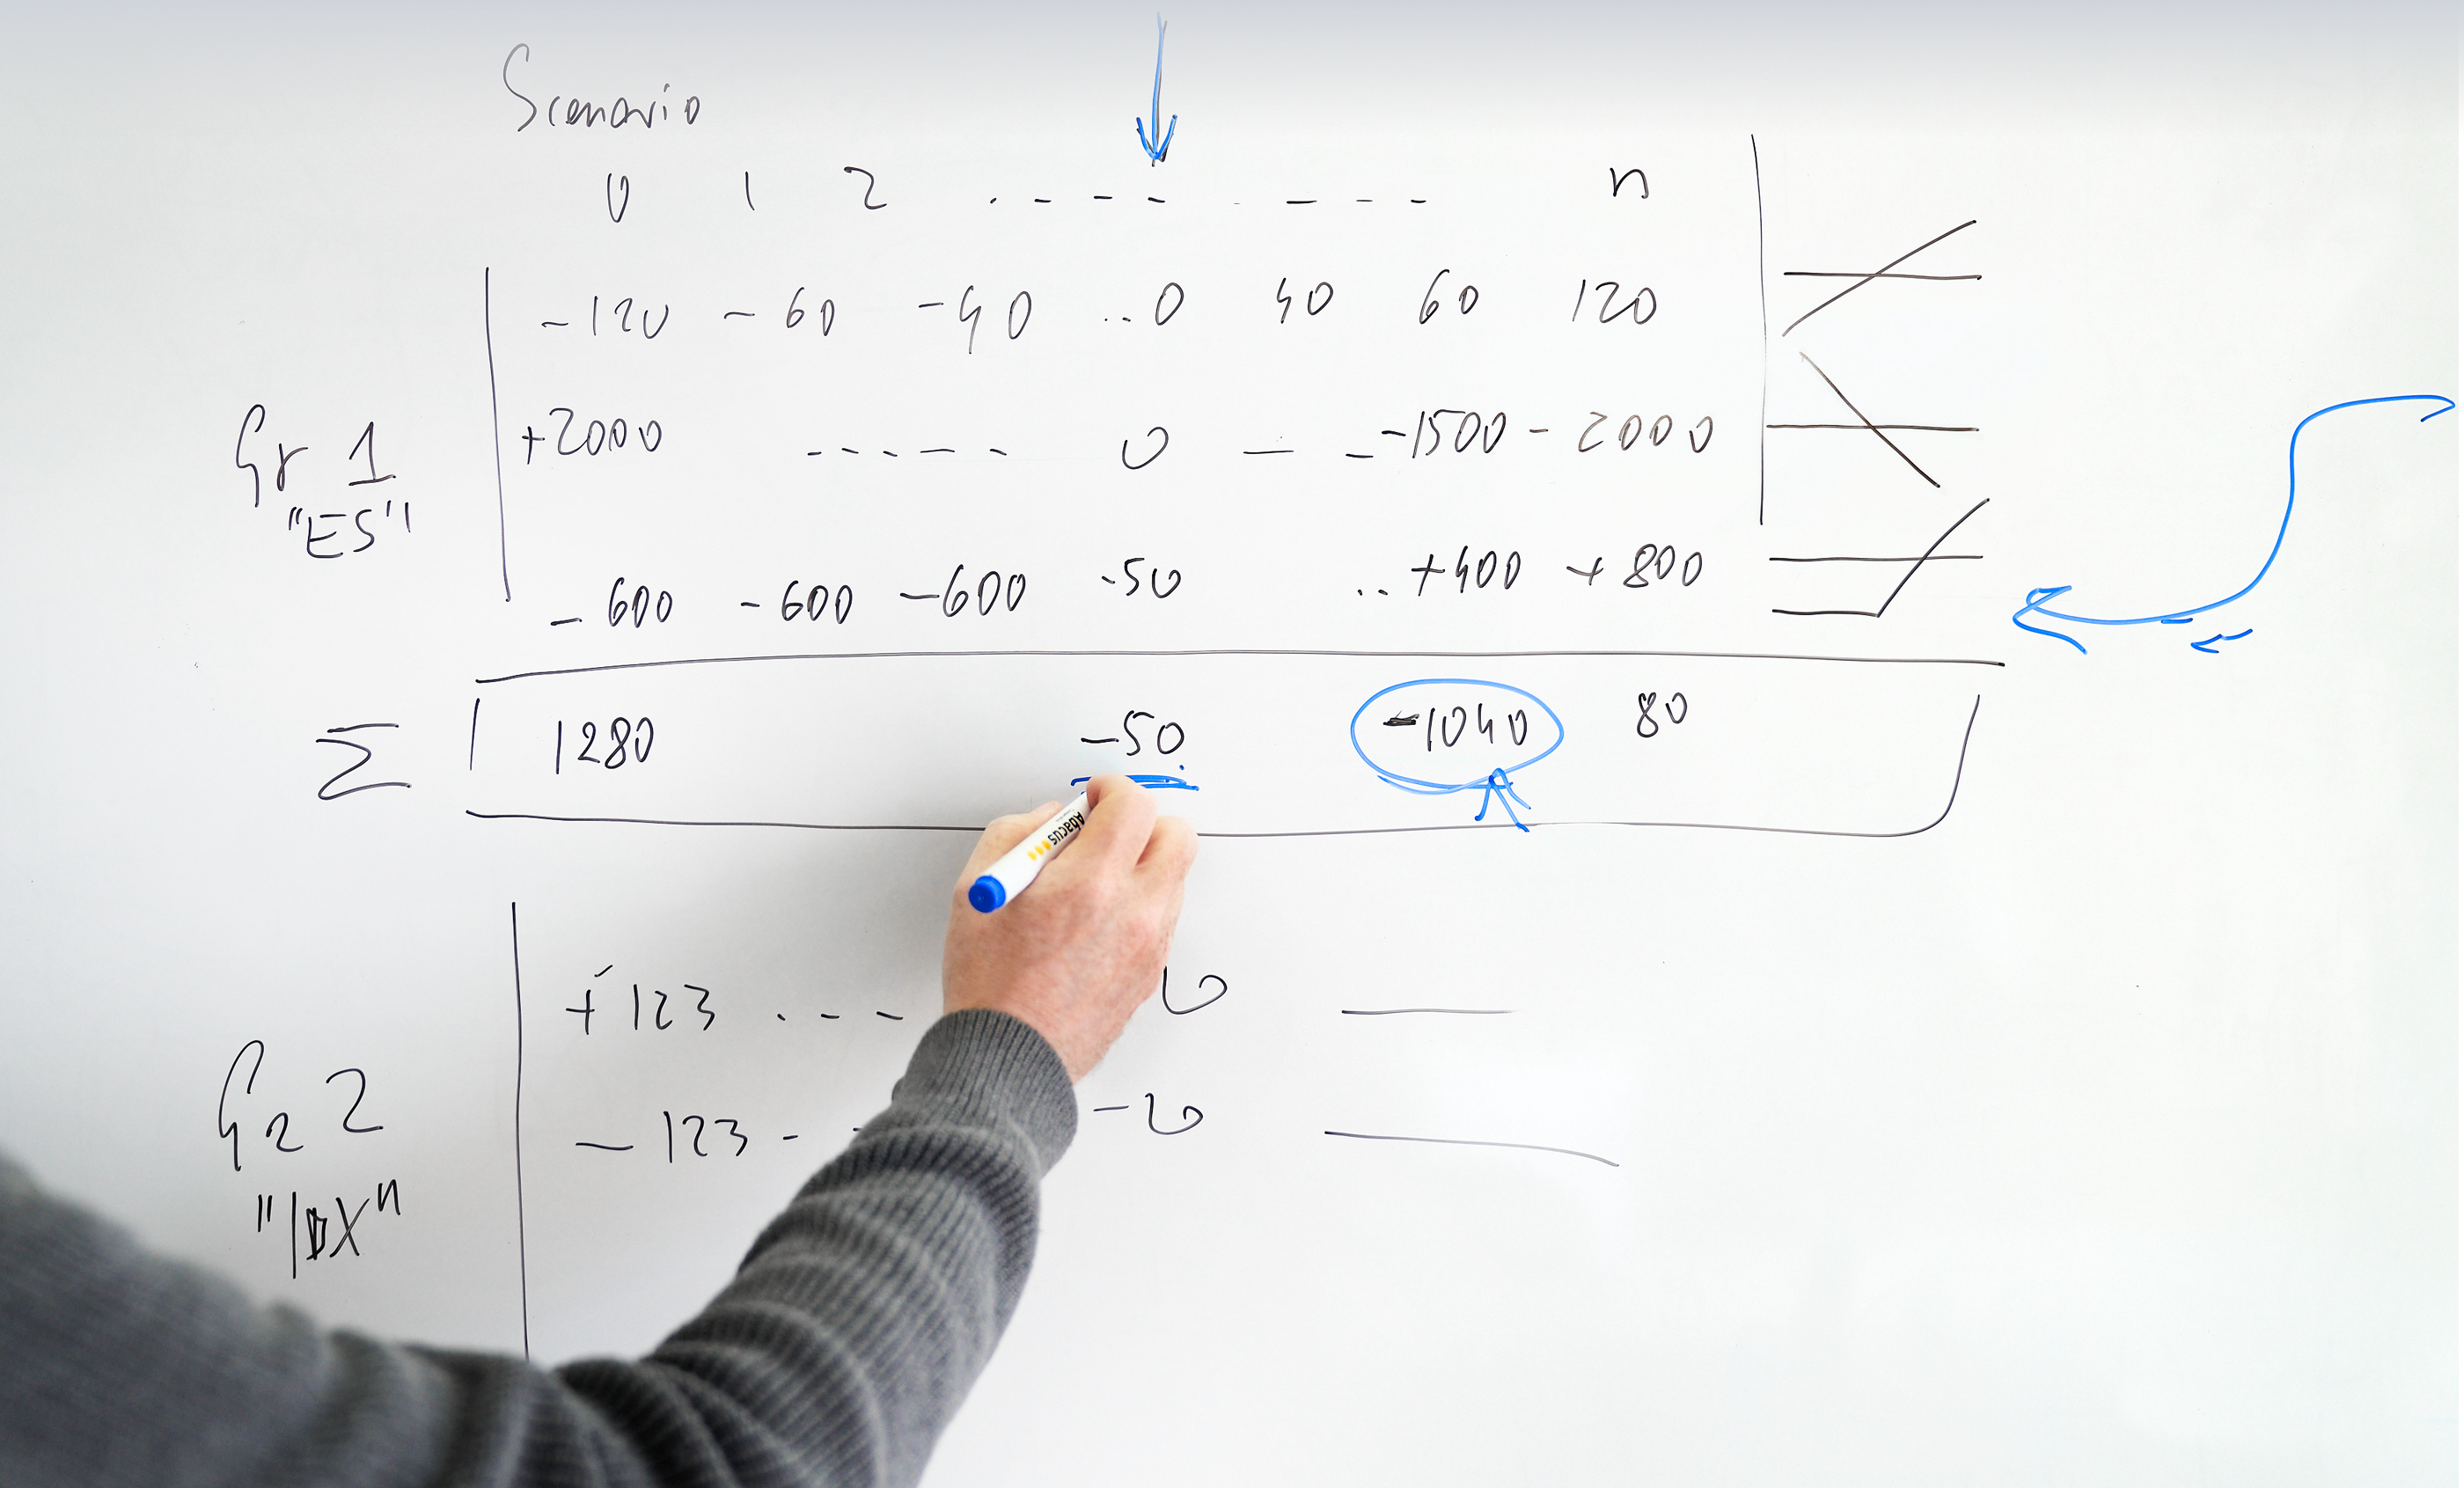 Scenario
0 1 2 . - - - - - - - n
-120 -60 -40 ..0 40 60 120
Gr 1
+2000 - - - - - 0 — - -1500 -2000
"ES"
-600 -600 -600 -50 .. +400 +800
Σ 1280 -50 -1040 80
Abacus
+123 . - - 0 —
Gr 2
-123 - - -20 —
"IDX"